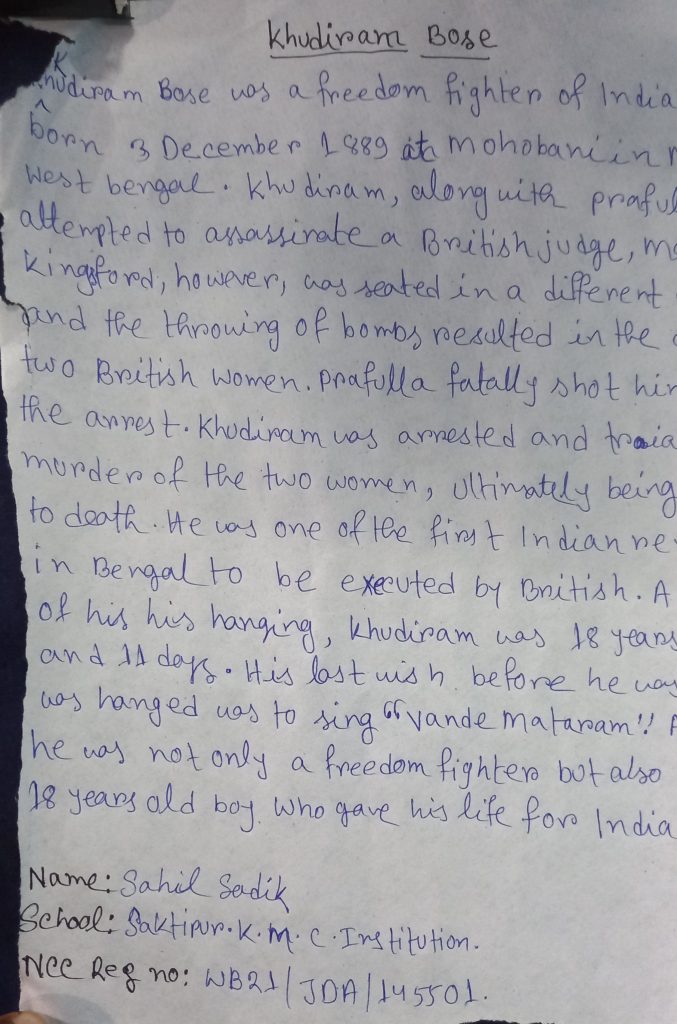 Khudiram Bose
Khudiram Bose was a freedom fighter of India
born 3 December 1889 at mohobani in
West bengal. Khudiram, along with praful
attempted to assassinate a British judge, m
Kingsford, however, was seated in a different
and the throwing of bombs resulted in the
two British women. Prafulla fatally shot him
the arrest. Khudiram was arrested and
murder of the two women, ultimately being
to death. He was one of the first Indian re
in Bengal to be executed by British. A
of his his hanging, Khudiram was 18 years
and 11 days. His last wish before he was
was hanged was to sing "vande mataram". A
he was not only a freedom fighter but also
18 years old boy who gave his life for India
Name: Sahil Sadik
School: Saktipur. K. M. C. Institution.
NCC Reg no: WB21/JDA/145501.